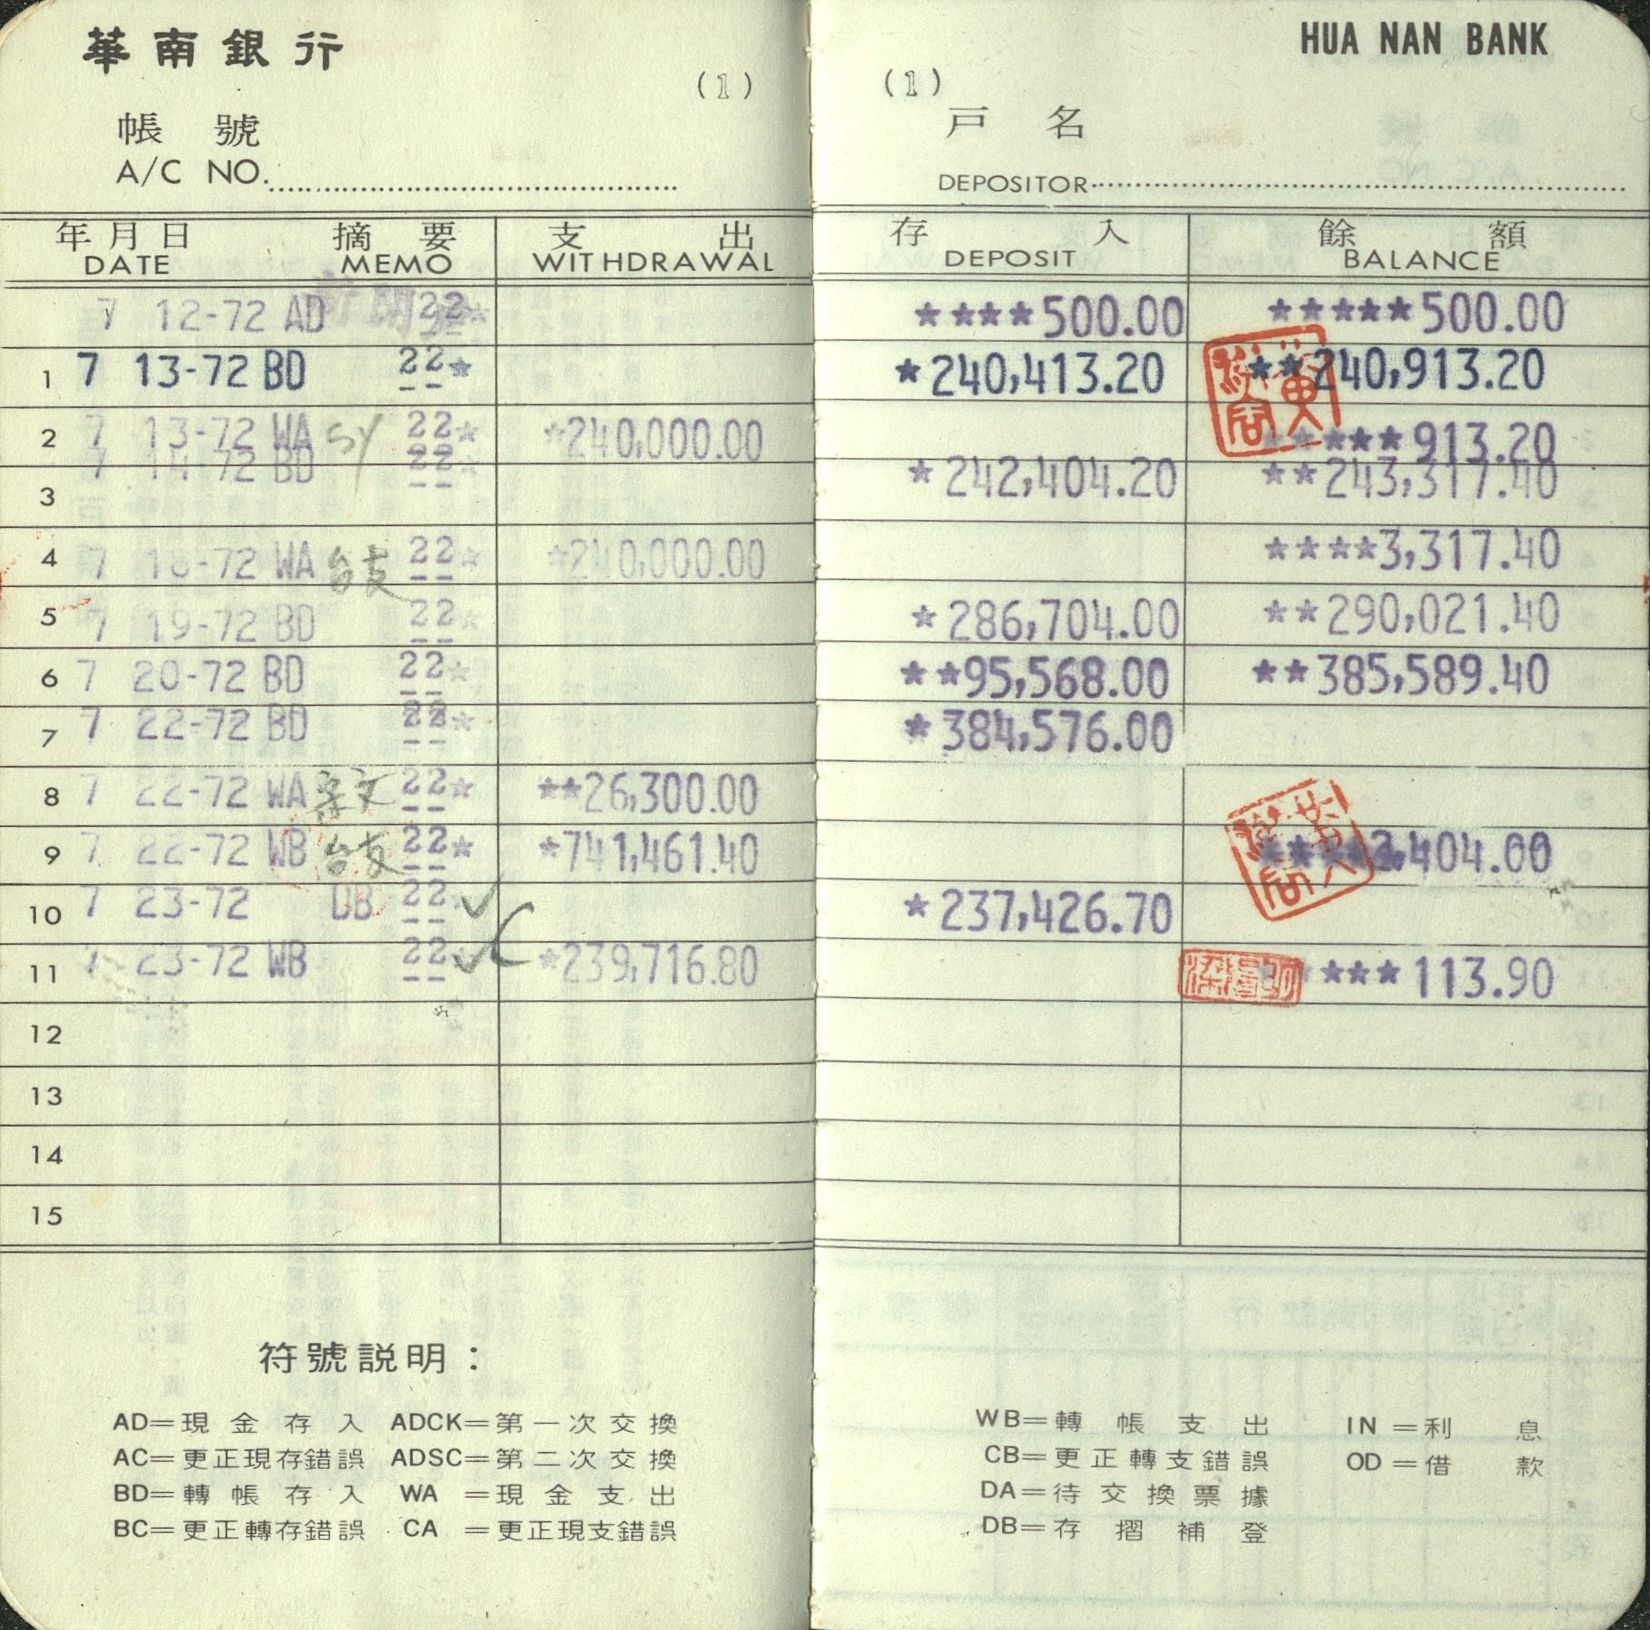 華南銀行
(1)
帳號
A/C NO.
年月日 摘要 支出
DATE MEMO WITHDRAWAL
7 12-72 AD 22*
1 7 13-72 BD 22*
2 7 13-72 WA SY 22* *240,000.00
3 7 14-72 BD 22*
4 7 18-72 WA 台支 22* *240,000.00
5 7 19-72 BD 22*
6 7 20-72 BD 22*
7 7 22-72 BD 22*
8 7 22-72 WA 22* **26,300.00
9 7 22-72 WB 台支 22* *741,461.40
10 7 23-72 DB 22*
11 7 23-72 WB 22* *239,716.80
12
13
14
15
符號説明：
AD=現金存入 ADCK=第一次交換
AC=更正現存錯誤 ADSC=第二次交換
BD=轉帳存入 WA=現金支出
BC=更正轉存錯誤 CA=更正現支錯誤
HUA NAN BANK
(1)
戸名
DEPOSITOR
存入 餘額
DEPOSIT BALANCE
****500.00 *****500.00
*240,413.20 **240,913.20
*****913.20
*242,404.20 **243,317.40
****3,317.40
*286,704.00 **290,021.40
**95,568.00 **385,589.40
*384,576.00
2,404.00
*237,426.70
***113.90
WB=轉帳支出 IN=利息
CB=更正轉支錯誤 OD=借款
DA=待交換票據
DB=存摺補登